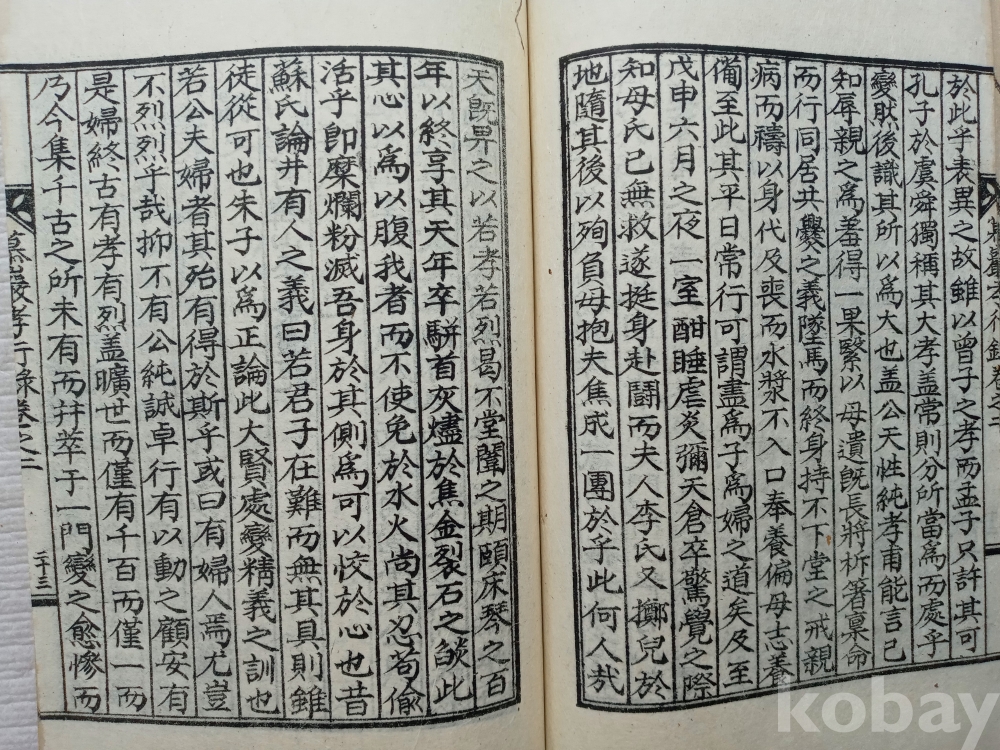 於此乎表異之故雖以曾子之孝而孟子只許其可
孔子於虞舜獨稱其大孝盖常則分所當爲而處乎
變然後識其所以爲大也盖公天性純孝甫能言已
知辱親之爲羞得一果緊以母遺旣長將析箸稟命
而行同居共爨之義墜馬而終身持不下堂之戒親
病而禱以身代及喪而水漿不入口奉養偏母志養
備至此其平日常行可謂盡爲子爲婦之道矣及至
戊申六月之夜一室酣睡虐炎彌天倉卒驚覺之際
知母氏已無救遂挺身赴鬪而夫人李氏又擲兒於
地隨其後以殉負母抱夫焦成一團於乎此何人哉
天旣畀之以若孝若烈曷不堂閨之期頤床琴之百
年以終享其天年卒騈首灰燼於焦金裂石之焰此
其心以爲以腹我者而不使免於水火尚其忍苟偸
活乎卽糜爛粉滅吾身於其側爲可以恔於心也昔
蘇氏論井有人之義曰若君子在難而無其具則雖
徒從可也朱子以爲正論此大賢處變精義之訓也
若公夫婦者其殆有得於斯乎或曰有婦人焉尤豈
不烈烈乎哉抑不有公純誠卓行有以動之顧安有
是婦終古有孝有烈盖曠世而僅有千百而僅一而
乃今集千古之所未有而幷萃于一門變之愈慘而
巖孝行錄卷之二
二十三
kobay